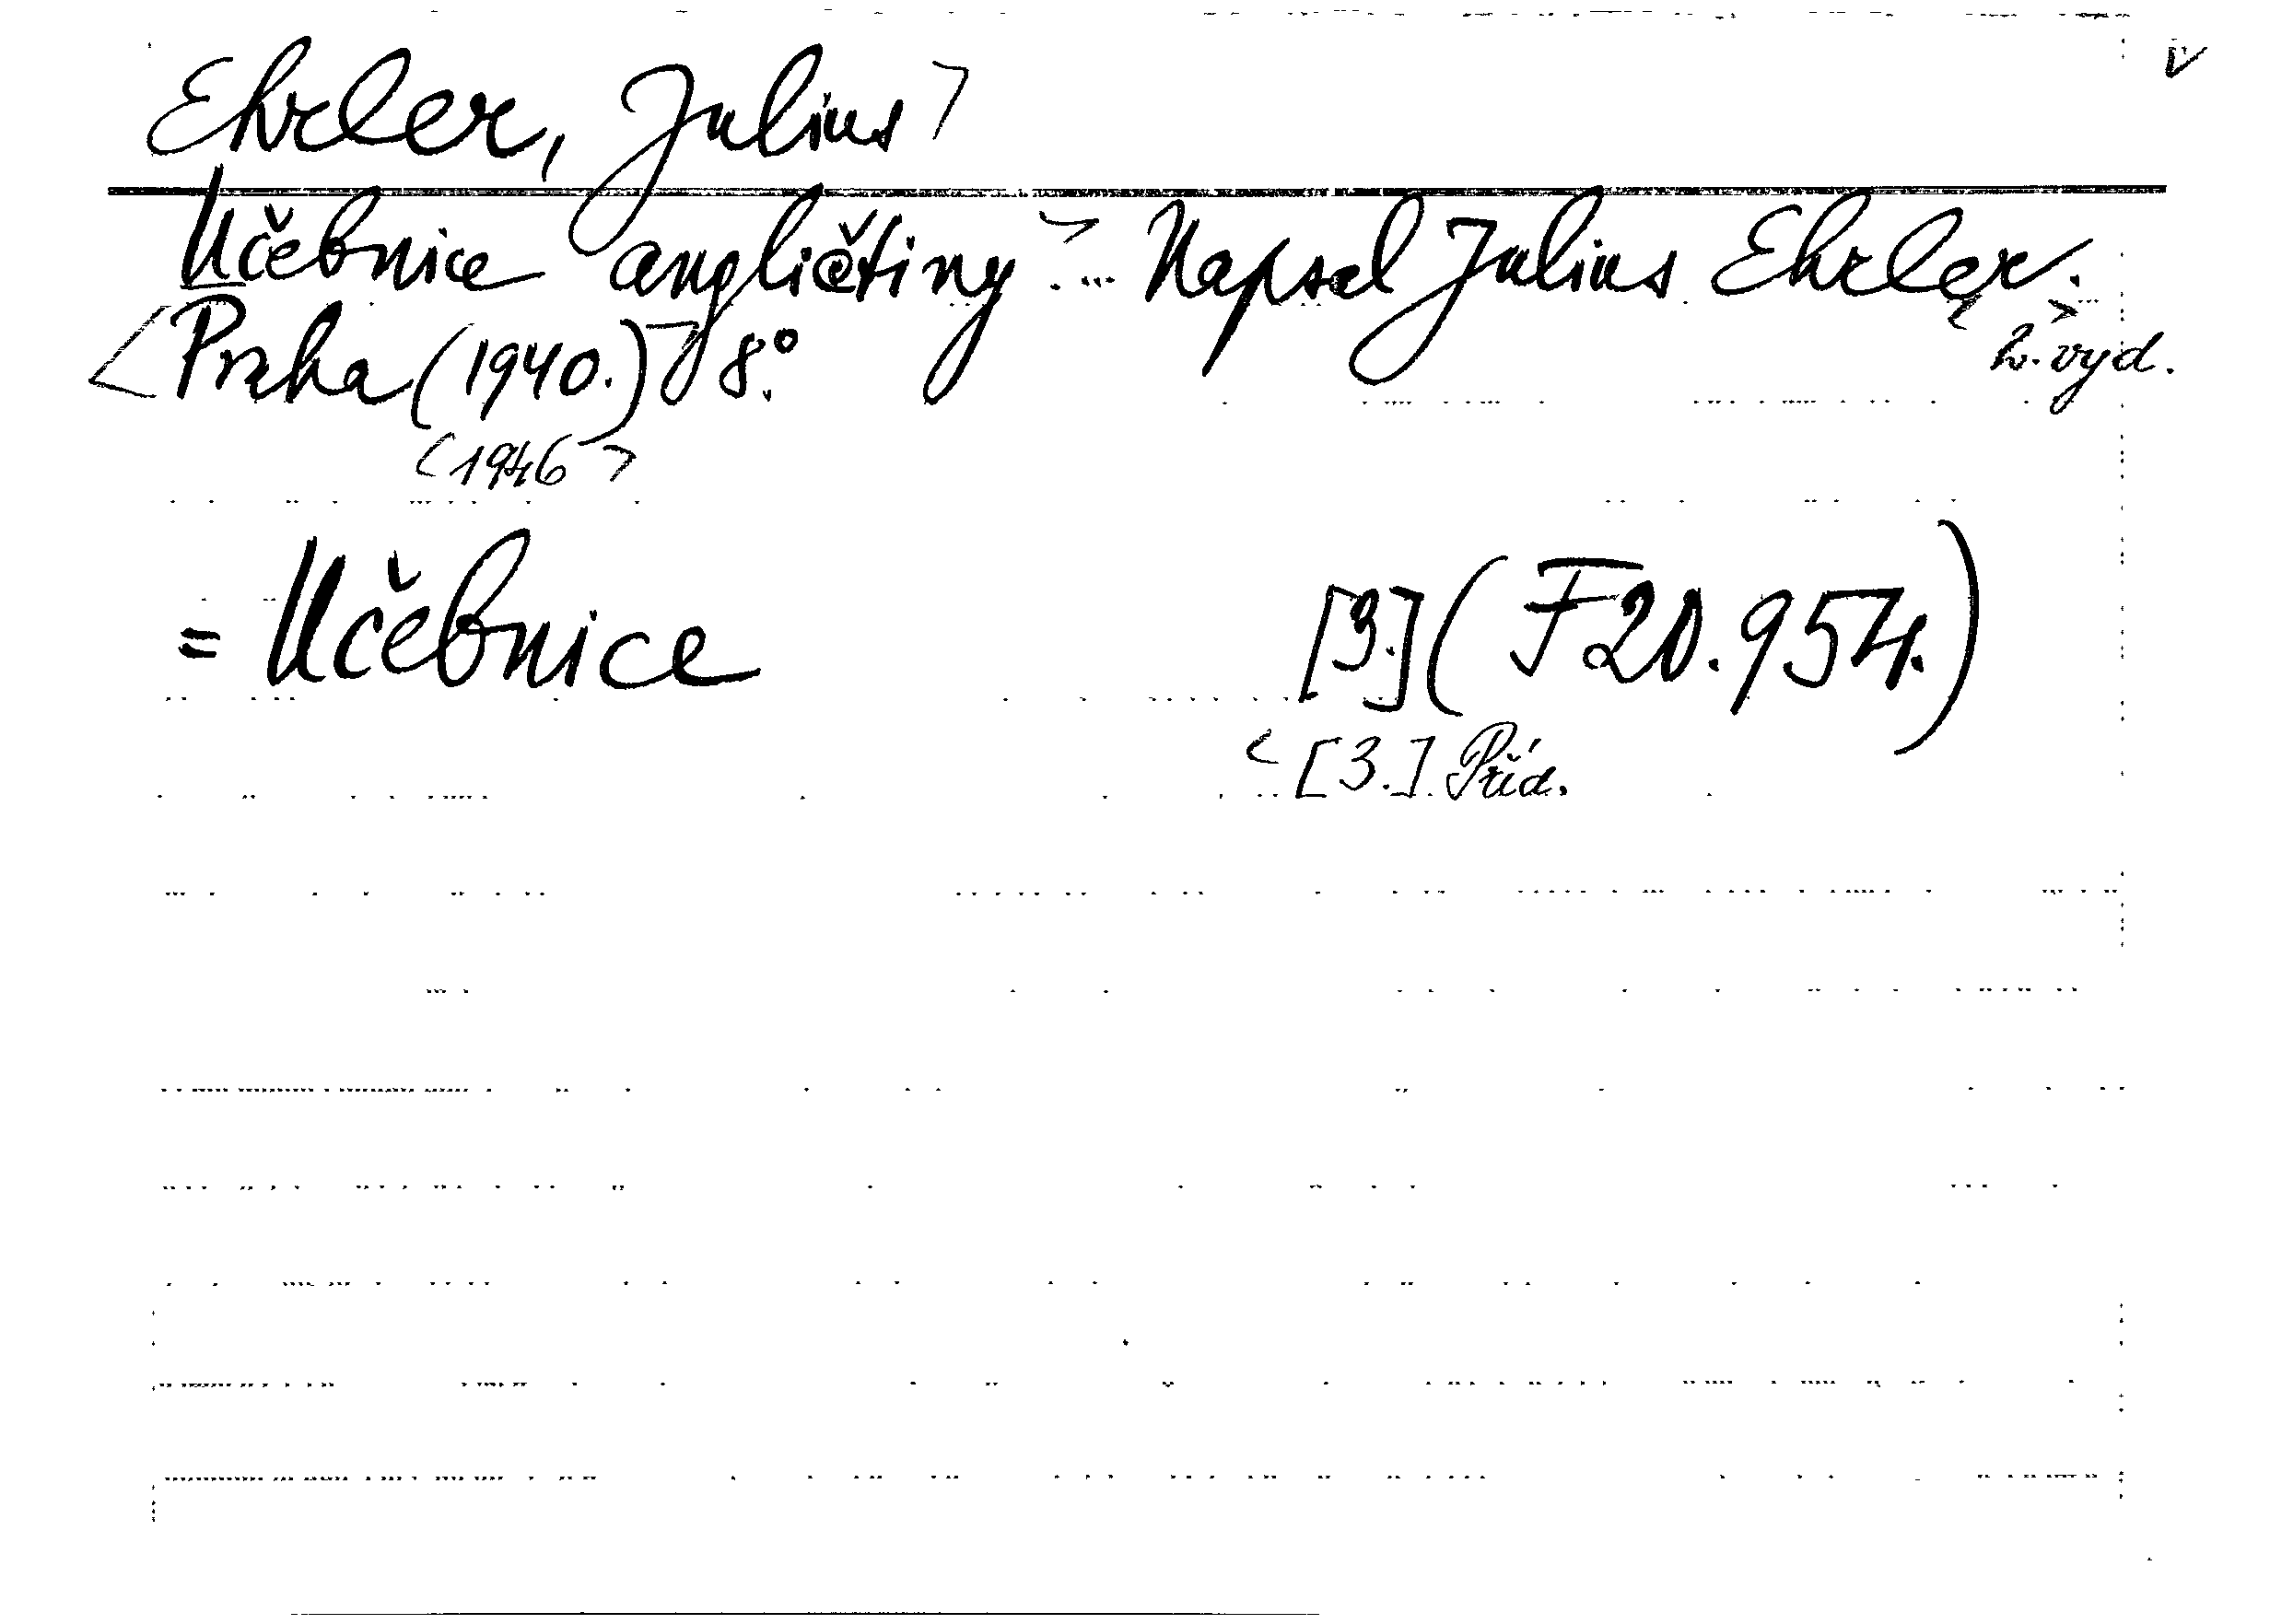 Ehrler, Julius > v
Učebnice angličtiny > ... Napsal Julius Ehrler.
< >
< Praha (1940.) > 8.° 2. vyd.
< 1946 >
= Učebnice [3.] (F 20.954.)
< [3.] Příd.